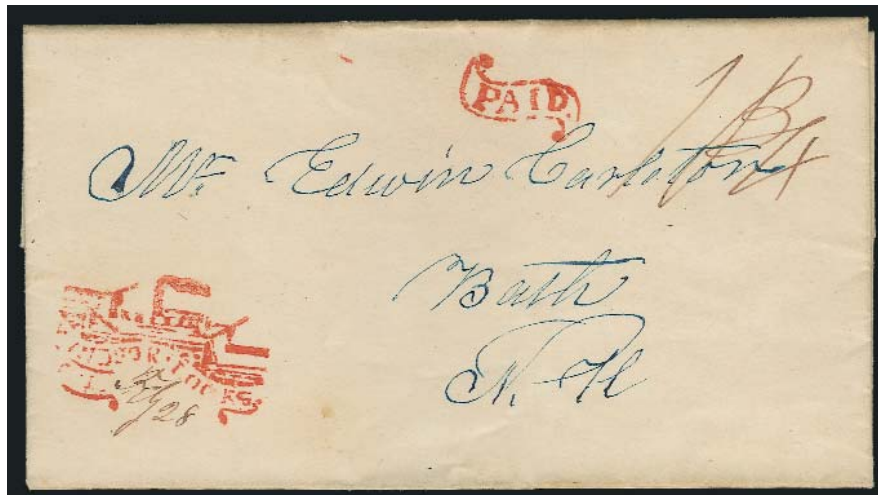 PAID
18 3/4
Mr. Edwin Carleton
Bath
N. H
WINDSOR LOCKS.
CT.
July 28